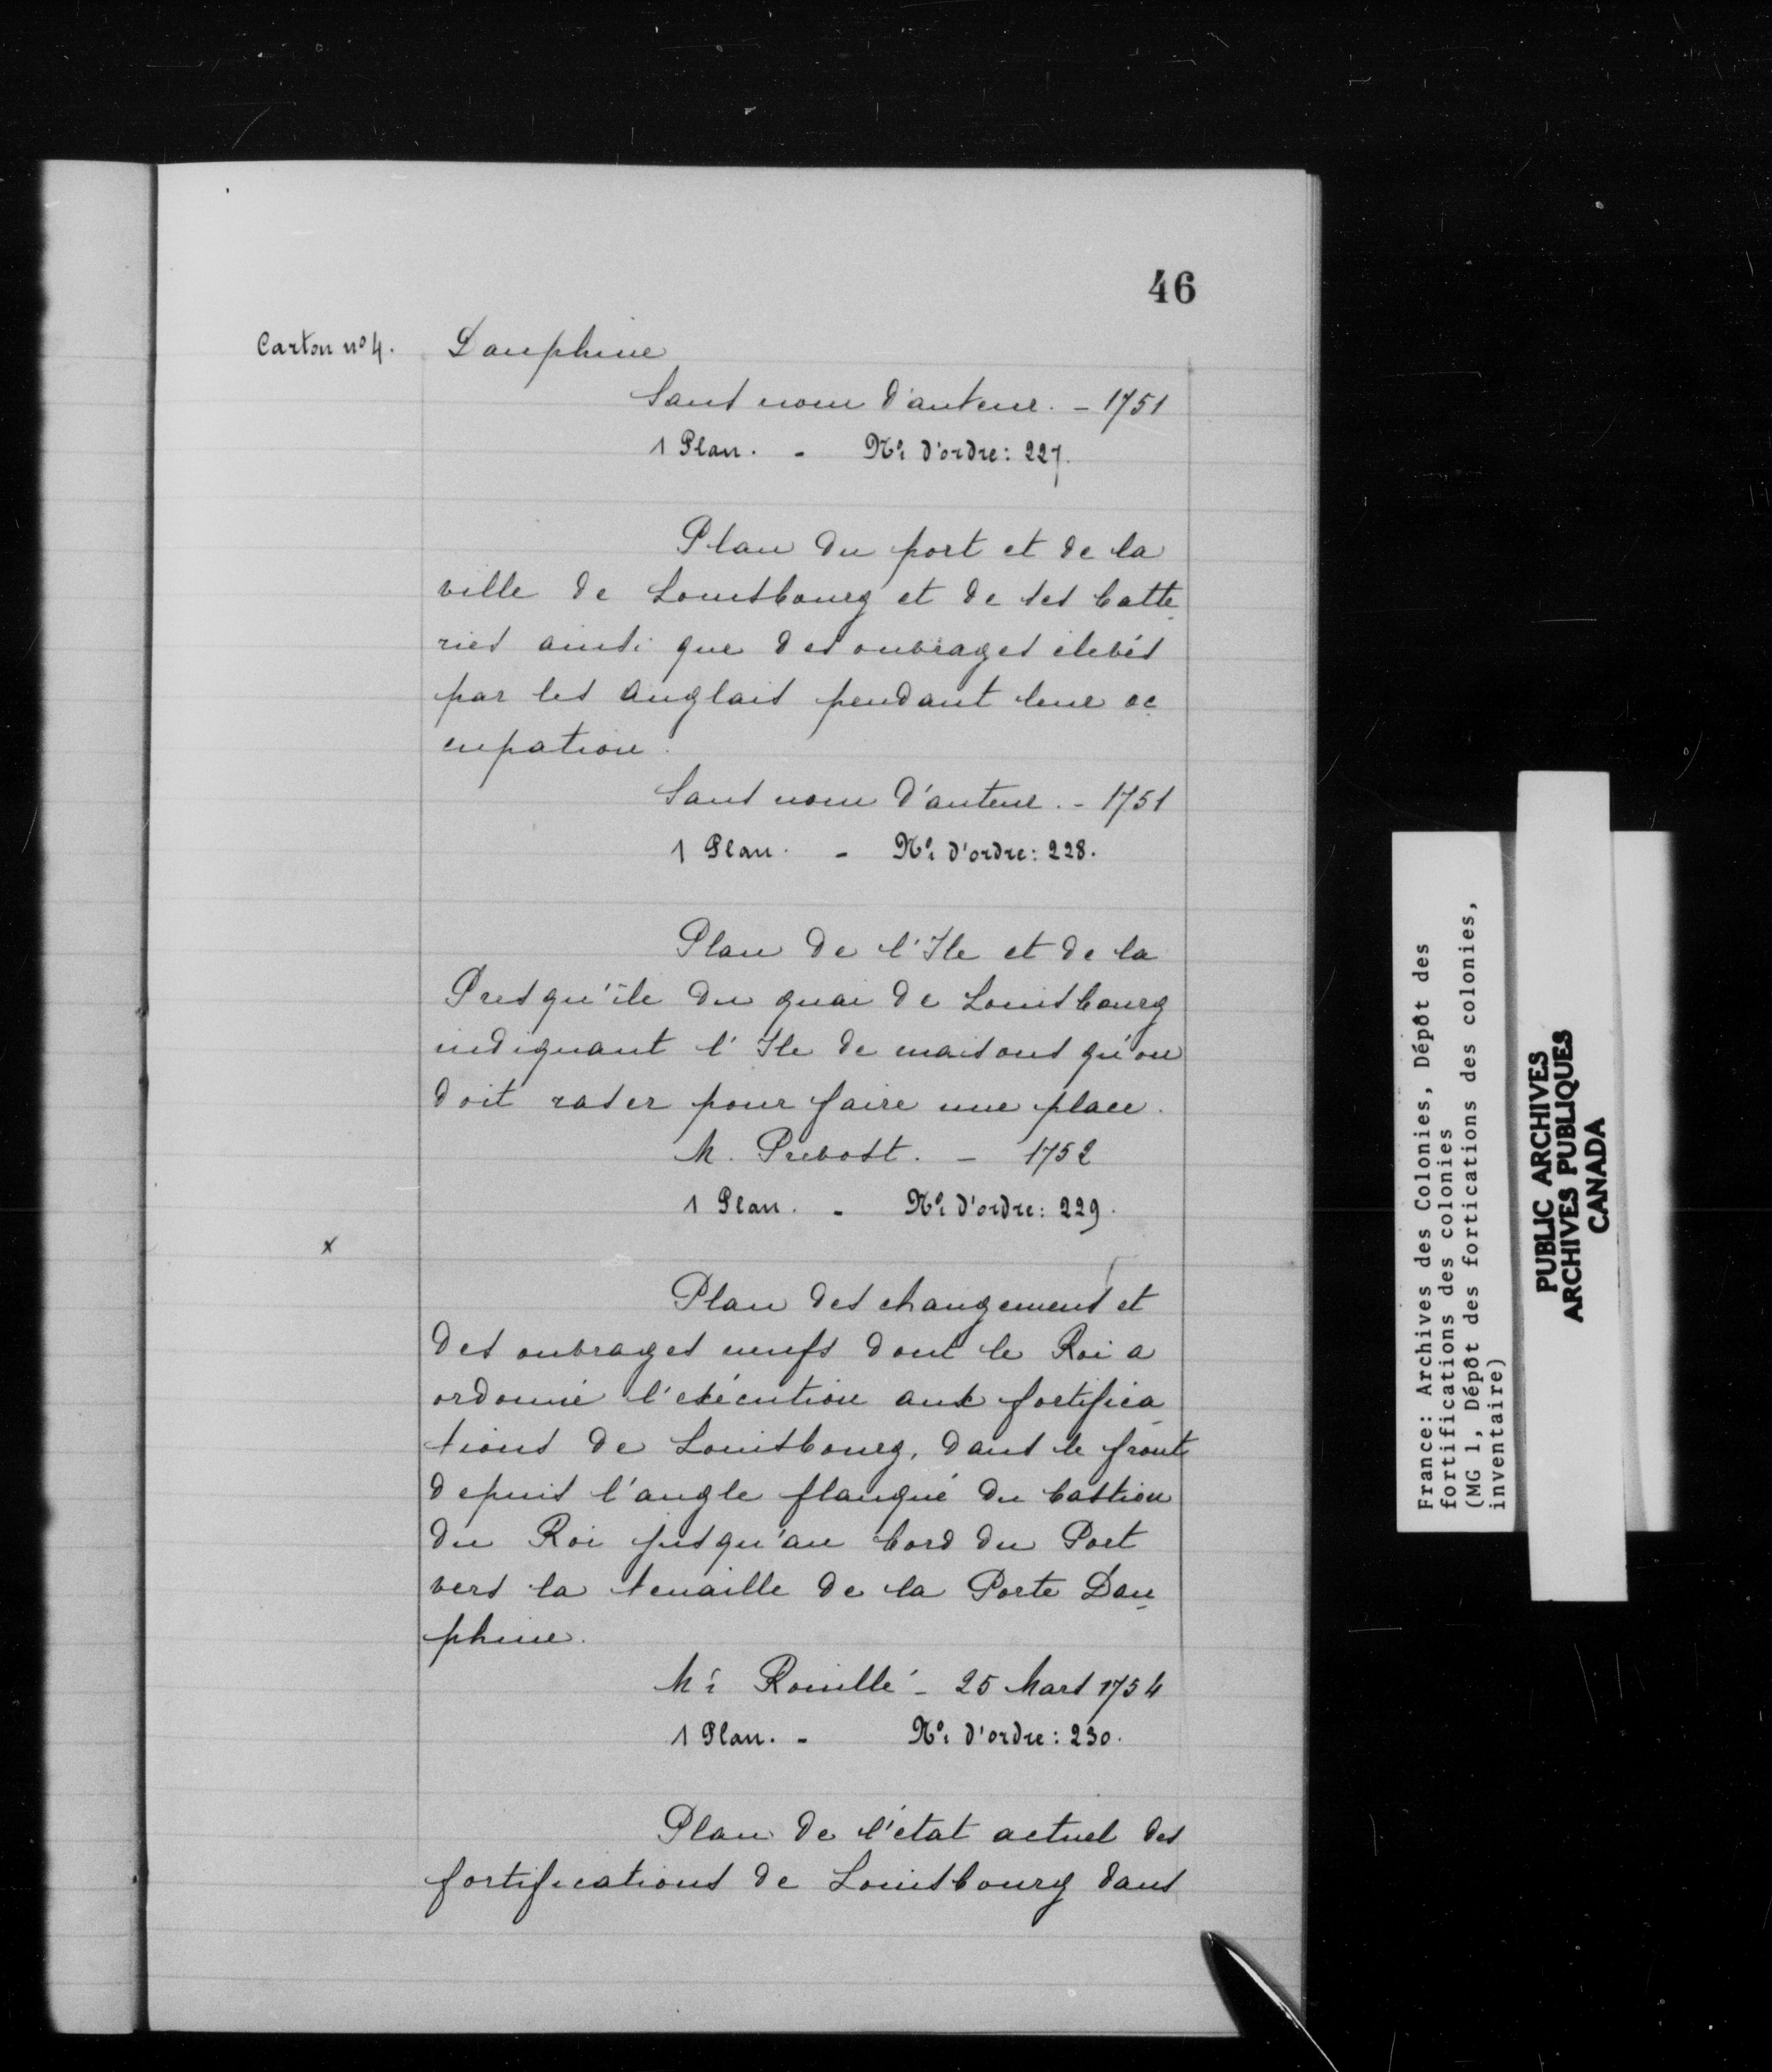 46
Carton nº 4.
Dauphine
Sans nom d'auteur. - 1751
1 Plan. - Nº: d'ordre: 227.
Plan du port et de la
ville de Louisbourg et de ses batte
ries ainsi que des ouvrages élevés
par les anglais pendant leur oc
cupation.
Sans nom d'auteur. - 1751
1 Plan. - Nº: d'ordre: 228.
Plan de l'Ile et de la
Presqu'île du quai de Louisbourg
indiquant l'Ile de maisons qu'on
doit raser pour faire une place.
M. Prevost. - 1752
1 Plan. - Nº: d'ordre: 229.
x
Plan des changements et
des ouvrages neufs dont le Roi a
ordonné l'exécution aux fortifica
tions de Louisbourg, dans le front
depuis l'angle flanqué du bastion
du Roi jusqu'au bord du Port
vers la tenaille de la Porte Dau
phine.
Mr: Rouillé - 25 Mars 1754
1 Plan. - Nº: d'ordre: 230.
Plan de l'état actuel des
fortifications de Louisbourg dans
France: Archives des Colonies, Dépôt des
fortifications des colonies
(MG 1, Dépôt des fortications des colonies,
inventaire)
PUBLIC ARCHIVES
ARCHIVES PUBLIQUES
CANADA